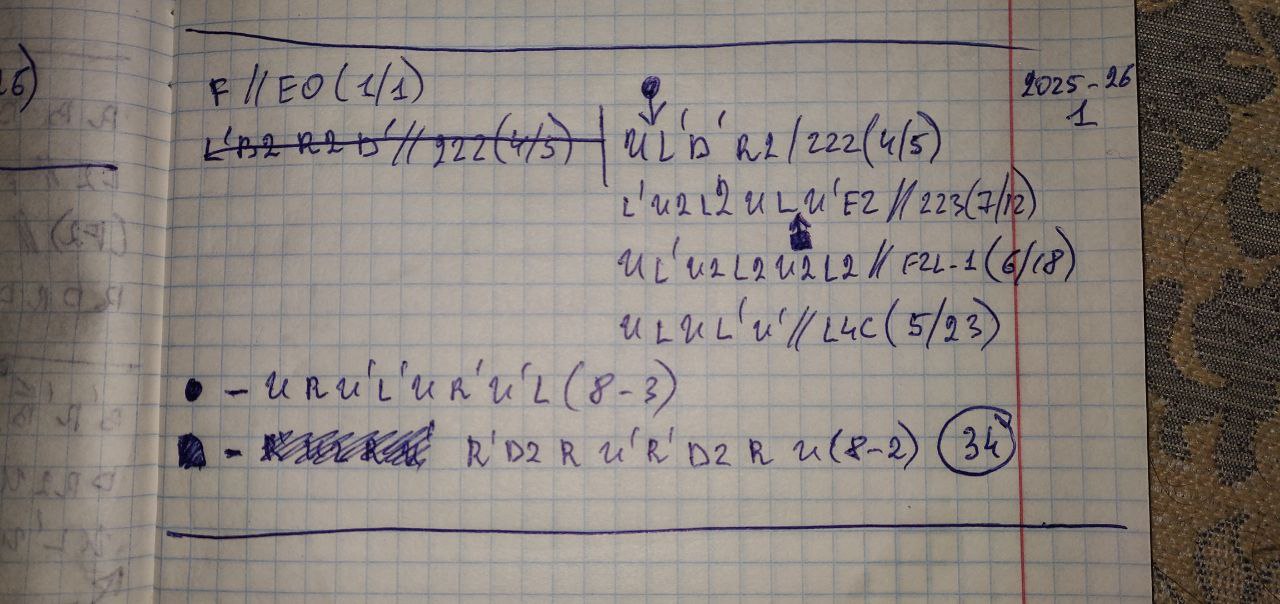 26)
2025-26
1
F // EO (1/1)
L'B2 R2 D' // 222 (4/5)
U L' D' R2 / 222 (4/5)
L' U2 L2 U L U' F2 // 223 (7/12)
U L' U2 L2 U2 L2 // F2L-1 (6/18)
U L U L' U' // L4C (5/23)
● - U R U' L' U R' U' L (8-3)
■ - R' D2 R U' R' D2 R U (8-2) 34